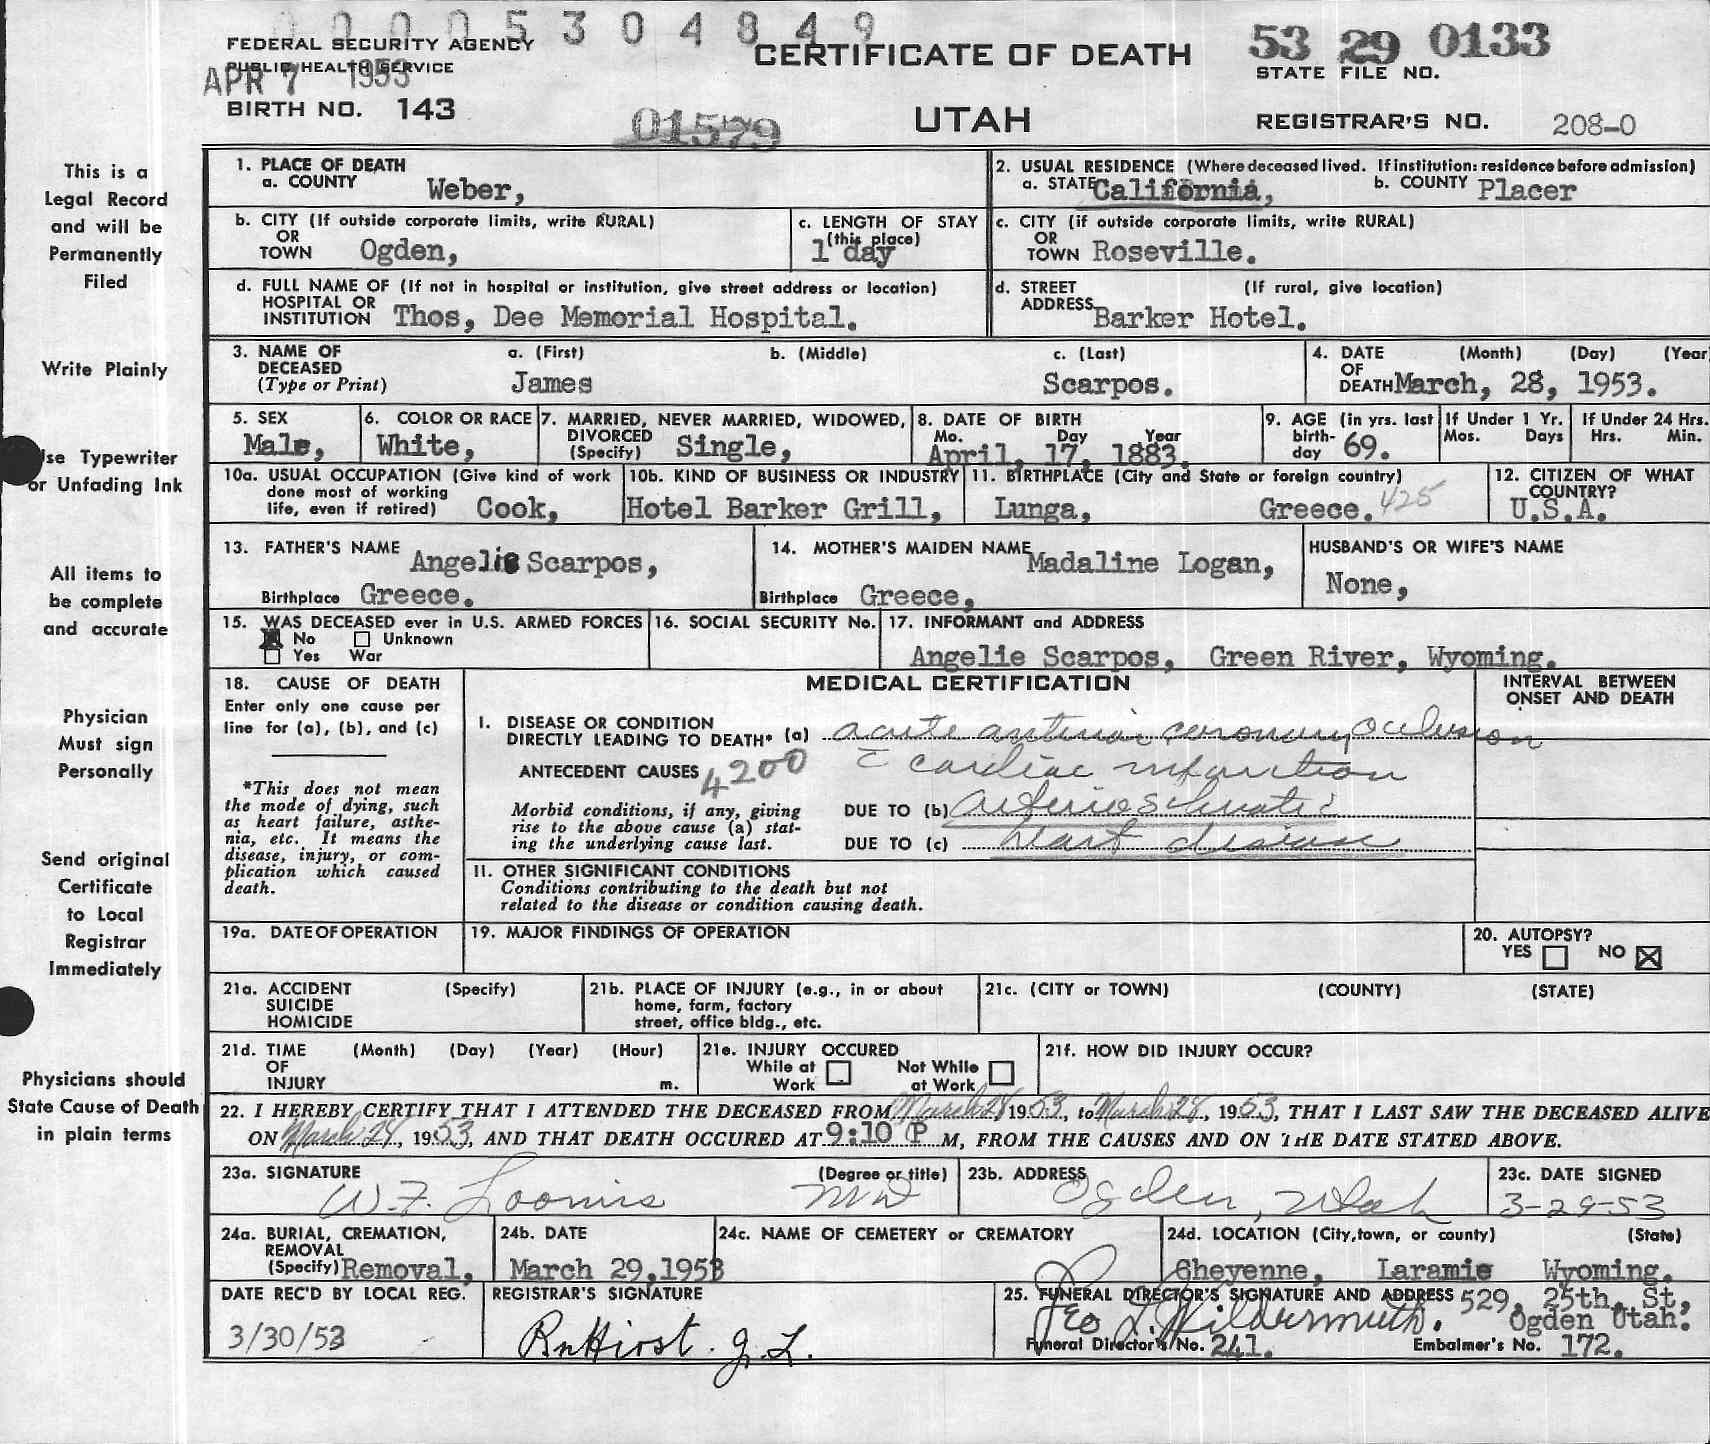 0 0 0 0 5 3 0 4 8 4 9
FEDERAL SECURITY AGENCY
PUBLIC HEALTH SERVICE
APR 7 1953
BIRTH NO. 143
01579
CERTIFICATE OF DEATH
UTAH
53 29 0133
STATE FILE NO.
REGISTRAR'S NO. 208-0
This is a
Legal Record
and will be
Permanently
Filed
Write Plainly
Use Typewriter
or Unfading Ink
All items to
be complete
and accurate
Physician
Must sign
Personally
Send original
Certificate
to Local
Registrar
Immediately
Physicians should
State Cause of Death
in plain terms
1. PLACE OF DEATH
a. COUNTY Weber,
2. USUAL RESIDENCE (Where deceased lived. If institution: residence before admission)
a. STATE California, b. COUNTY Placer
b. CITY (If outside corporate limits, write RURAL)
OR
TOWN Ogden,
c. LENGTH OF STAY
(this place)
1 day
c. CITY (if outside corporate limits, write RURAL)
OR
TOWN Roseville.
d. FULL NAME OF (If not in hospital or institution, give street address or location)
HOSPITAL OR
INSTITUTION Thos, Dee Memorial Hospital.
d. STREET (If rural, give location)
ADDRESS Barker Hotel.
3. NAME OF
DECEASED
(Type or Print)
a. (First) b. (Middle) c. (Last)
James Scarpos.
4. DATE (Month) (Day) (Year
OF
DEATH March, 28, 1953.
5. SEX
Male,
6. COLOR OR RACE
White,
7. MARRIED, NEVER MARRIED, WIDOWED,
DIVORCED
(Specify) Single,
8. DATE OF BIRTH
Mo. Day Year
April, 17, 1883.
9. AGE (in yrs. last
birth-
day 69.
If Under 1 Yr.
Mos. Days
If Under 24 Hrs.
Hrs. Min.
10a. USUAL OCCUPATION (Give kind of work
done most of working
life, even if retired) Cook,
10b. KIND OF BUSINESS OR INDUSTRY
Hotel Barker Grill,
11. BIRTHPLACE (City and State or foreign country)
Lunga, Greece. 425
12. CITIZEN OF WHAT
COUNTRY?
U.S.A.
13. FATHER'S NAME Angelie Scarpos,
Birthplace Greece.
14. MOTHER'S MAIDEN NAME Madaline Logan,
Birthplace Greece,
HUSBAND'S OR WIFE'S NAME
None,
15. WAS DECEASED ever in U.S. ARMED FORCES
No Unknown
Yes War
16. SOCIAL SECURITY No.
17. INFORMANT and ADDRESS
Angelie Scarpos, Green River, Wyoming.
18. CAUSE OF DEATH
Enter only one cause per
line for (a), (b), and (c)
*This does not mean
the mode of dying, such
as heart failure, asthe-
nia, etc. It means the
disease, injury, or com-
plication which caused
death.
MEDICAL CERTIFICATION
INTERVAL BETWEEN
ONSET AND DEATH
I. DISEASE OR CONDITION
DIRECTLY LEADING TO DEATH* (a) acute anterior coronary occlusion
ANTECEDENT CAUSES 4200 c cardiac infarction
Morbid conditions, if any, giving
rise to the above cause (a) stat-
ing the underlying cause last.
DUE TO (b) Arteriosclerotic
DUE TO (c) heart disease
11. OTHER SIGNIFICANT CONDITIONS
Conditions contributing to the death but not
related to the disease or condition causing death.
19a. DATE OF OPERATION
19. MAJOR FINDINGS OF OPERATION
20. AUTOPSY?
YES NO
21a. ACCIDENT (Specify)
SUICIDE
HOMICIDE
21b. PLACE OF INJURY (e.g., in or about
home, farm, factory
street, office bldg., etc.
21c. (CITY or TOWN) (COUNTY) (STATE)
21d. TIME (Month) (Day) (Year) (Hour)
OF
INJURY m.
21e. INJURY OCCURED
While at Not While
Work at Work
21f. HOW DID INJURY OCCUR?
22. I HEREBY CERTIFY THAT I ATTENDED THE DECEASED FROM March 28 1953, to March 28, 1953, THAT I LAST SAW THE DECEASED ALIVE
ON March 28, 1953, AND THAT DEATH OCCURED AT 9:10 P M, FROM THE CAUSES AND ON THE DATE STATED ABOVE.
23a. SIGNATURE (Degree or title)
W. F. Loomis MD
23b. ADDRESS
Ogden, Utah
23c. DATE SIGNED
3-29-53
24a. BURIAL, CREMATION,
REMOVAL
(Specify) Removal,
24b. DATE
March 29, 1953
24c. NAME OF CEMETERY OR CREMATORY
24d. LOCATION (City, town, or county) (State)
Cheyenne, Laramie Wyoming.
DATE REC'D BY LOCAL REG.
3/30/53
REGISTRAR'S SIGNATURE
Rn Hirst. g. L.
25. FUNERAL DIRECTOR'S SIGNATURE AND ADDRESS 529, 25th, St,
Geo L. Wildermuth. Ogden Utah.
Funeral Director's No. 241. Embalmer's No. 172.